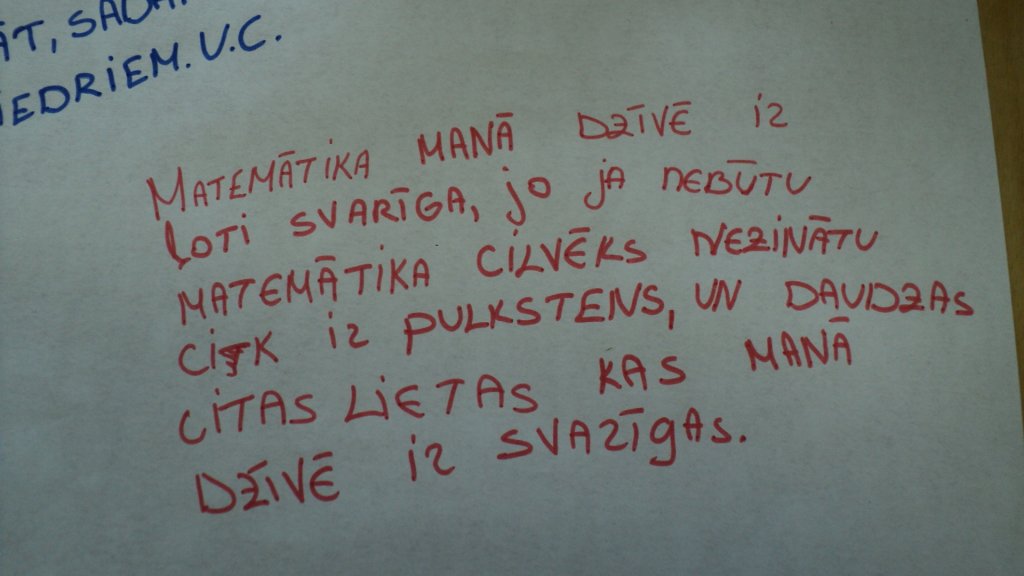 ĀT,
IEDRiEM. U.C.
MATEMĀTiKA MANĀ DZĪVĒ ir
ļoTi SVARĪGA, jo jA NEBŪTU
MATEMĀTiKA CiLVĒKS NEZiNĀTU
CiK ir PULKSTENS, UN DAUDZAS
CiTAS LiETAS KAS MANĀ
DZĪVĒ ir SVArĪgAS.